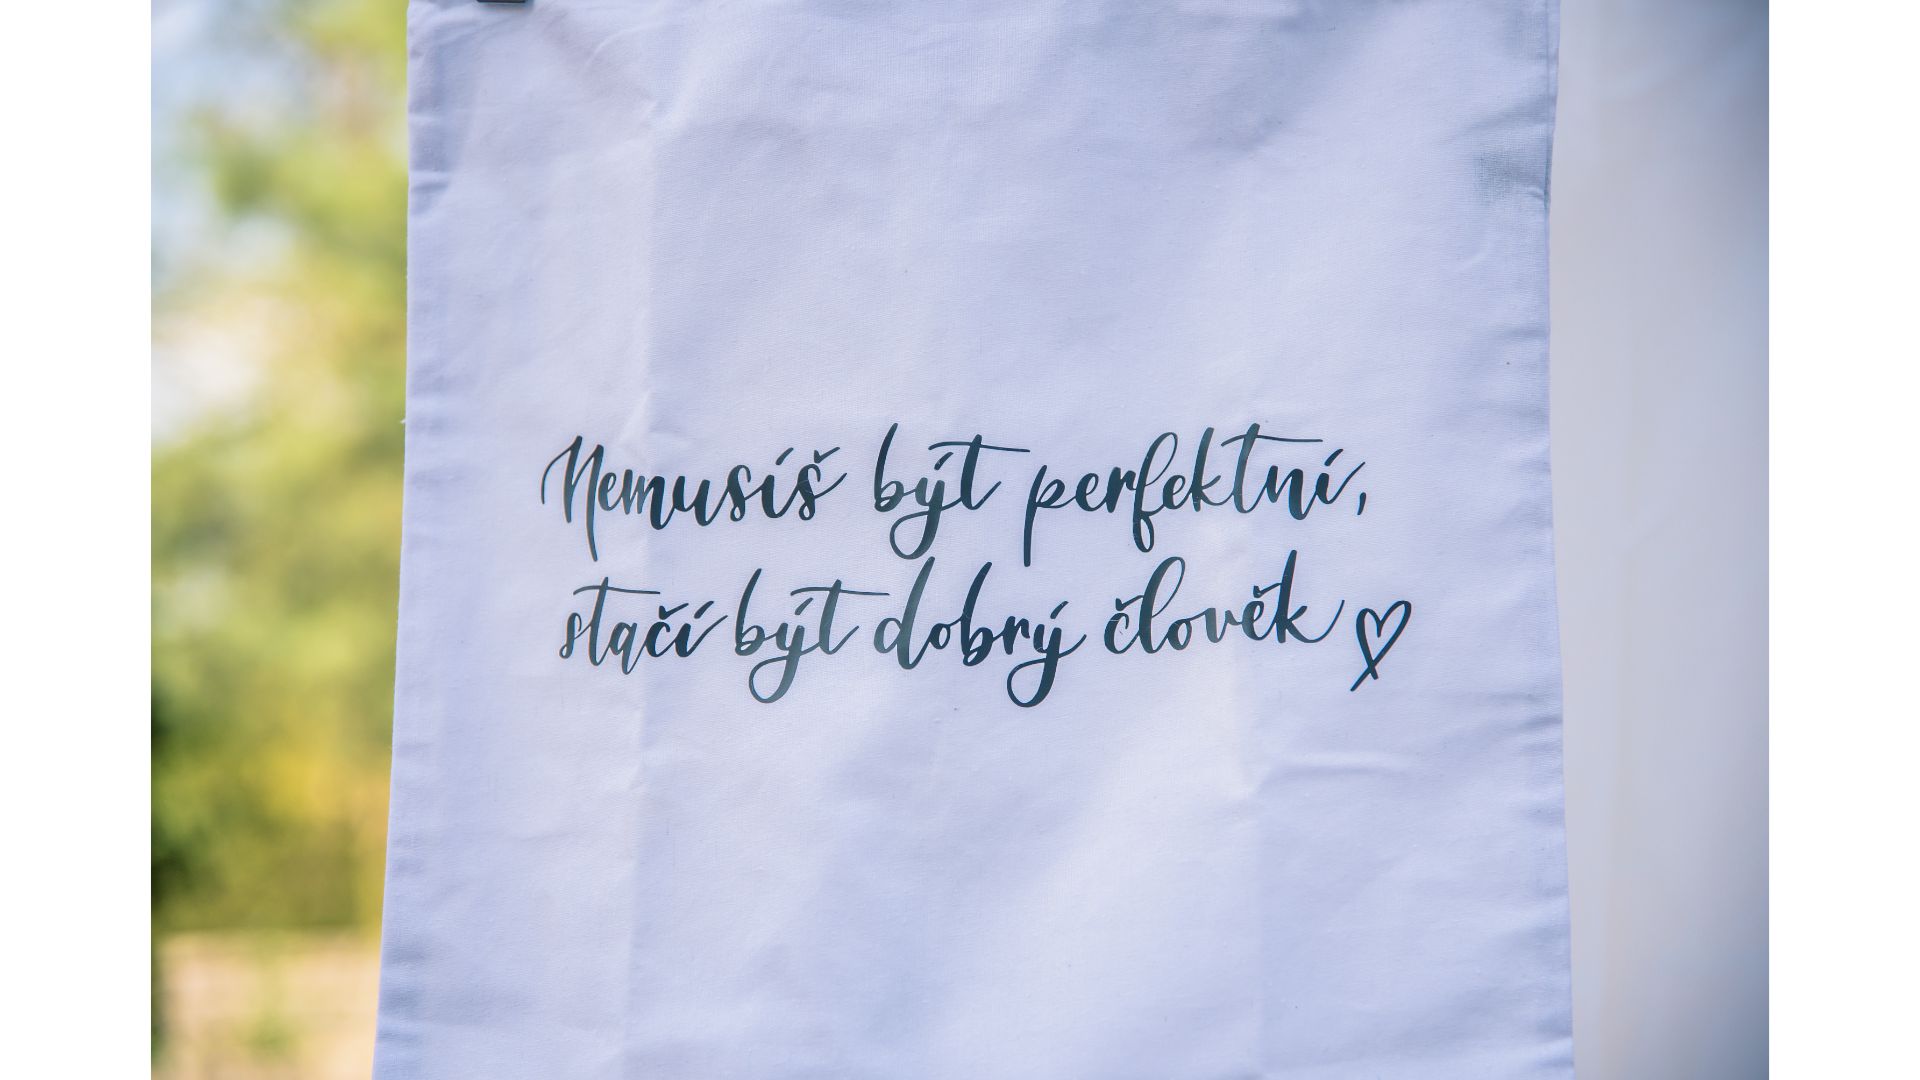 Nemusíš být perfektní,
stačí být dobrý člověk ♡